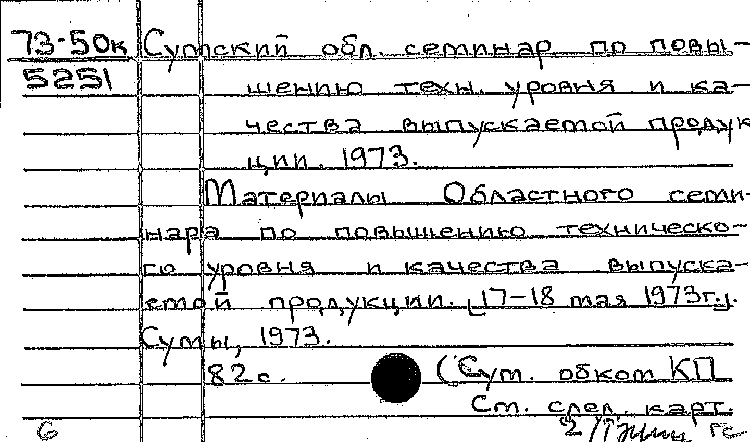 73-50к Сумский обл. семинар по повы-
5251 шению техн. уровня и ка-
чества выпускаемой продук
ции. 1973.
Материалы Областного семи-
нара по повышению техническо-
го уровня и качества выпуска-
емой продукции. [17-18 мая 1973г.].
Сумы, 1973.
82 с. (Сум. обком КП
См. след. карт.
6 гс